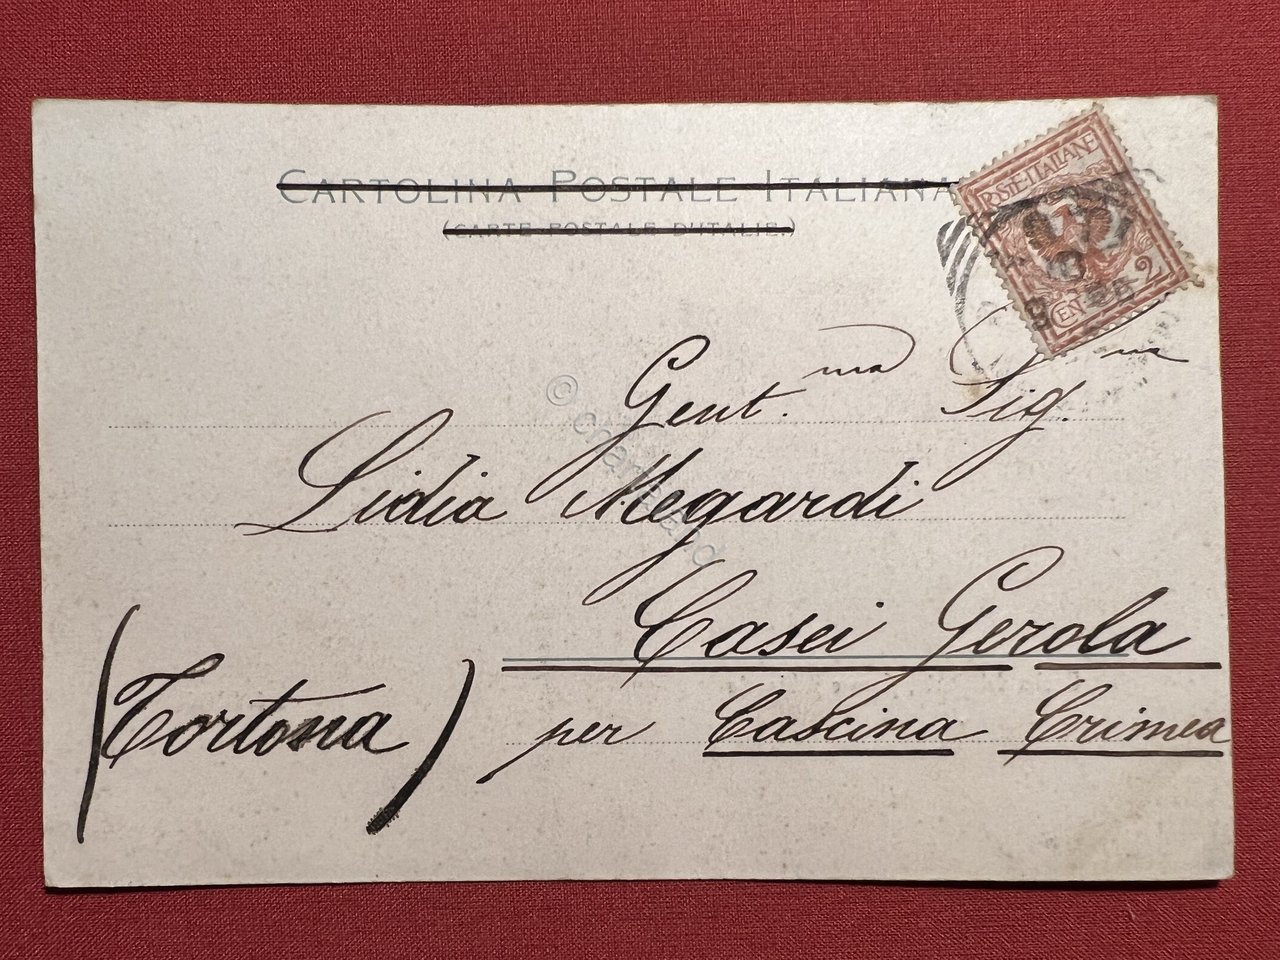 CARTOLINA POSTALE ITALIANA
(CARTE POSTALE D'ITALIE.)
POSTE ITALIANE
CEN 2
Gent.ma Sig.na
Lidia Megardi
Casei Gerola
(Tortona) per Cascina Crimea